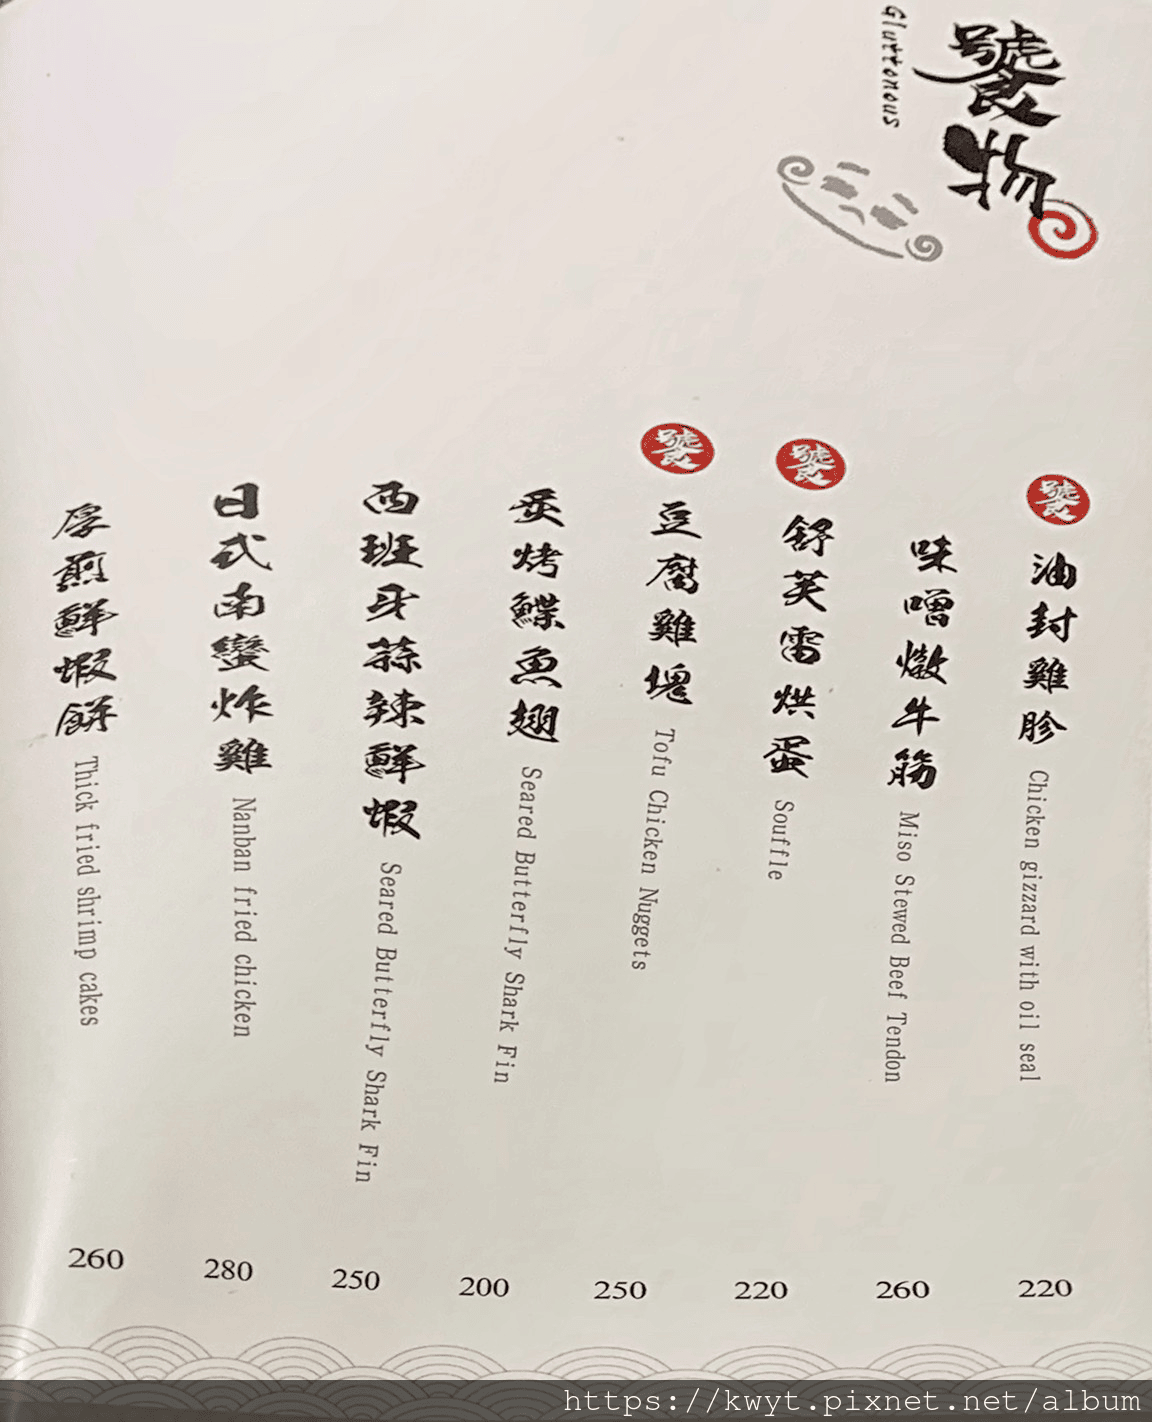 饕物
Gluttonous
饕
油封雞胗 Chicken gizzard with oil seal
220
味噌燉牛筋 Miso Stewed Beef Tendon
260
饕
舒芙雷烘蛋 Souffle
220
饕
豆腐雞塊 Tofu Chicken Nuggets
250
炙烤鰈魚翅 Seared Butterfly Shark Fin
200
西班牙蒜辣鮮蝦 Seared Butterfly Shark Fin
250
日式南蠻炸雞 Nanban fried chicken
280
厚煎鮮蝦餅 Thick fried shrimp cakes
260
https://kwyt.pixnet.net/album